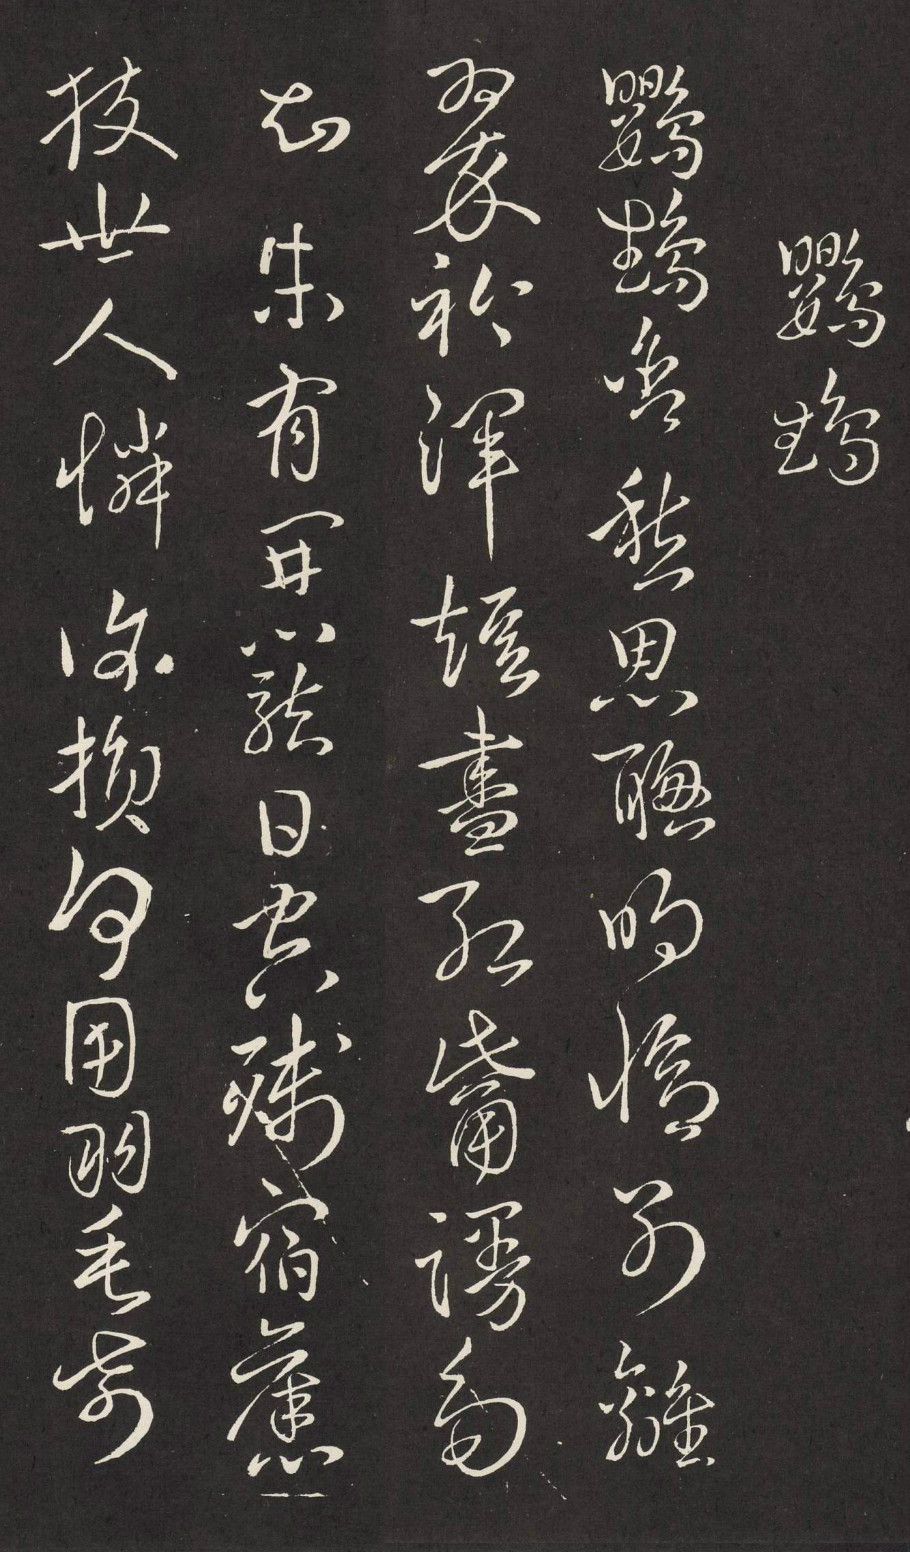 鸚鵡
鸚鵡含愁思聰明憶別離
翠衿渾短盡紅觜謾多
知未有開籠日空殘宿舊
枝世人憐復損何用羽毛奇